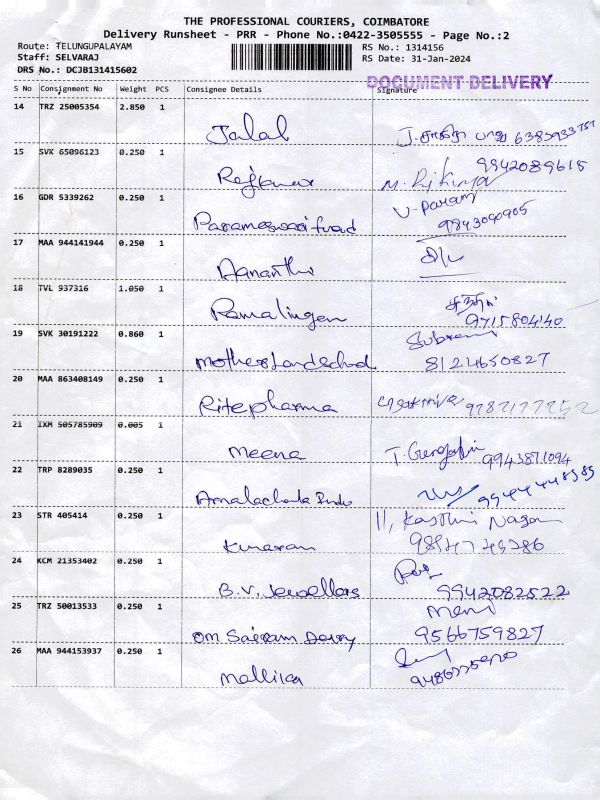 THE PROFESSIONAL COURIERS, COIMBATORE
Delivery Runsheet - PRR - Phone No.:0422-3505555 - Page No.:2
Route: TELUNGUPALAYAM RS No.: 1314156
Staff: SELVARAJ RS Date: 31-Jan-2024
DRS No.: DCJB131415602
DOCUMENT DELIVERY
S No Consignment No Weight PCS Consignee Details Signature
14 TRZ 25005354 2.850 1
Jalal J.
15 SVK 65096123 0.250 1
Rajkumar 9942089615
16 GDR 5339262 0.250 1
Parameswari food V-Param
17 MAA 944141944 0.250 1
Aananthi
18 TVL 937316 1.050 1
Ramalingen 9715804140
19 SVK 30191222 0.860 1
Motherslandschool 8124650827
20 MAA 863408149 0.250 1
Ritepharma
21 IXM 505785909 0.005 1
Meena 9943871094
22 TRP 8289035 0.250 1
23 STR 405414 0.250 1
11,
Kumaran
24 KCM 21353402 0.250 1
B.V. Jewellers 9942082522
25 TRZ 50013533 0.250 1
Om Sairam 9566759827
26 MAA 944153937 0.250 1
Mallika